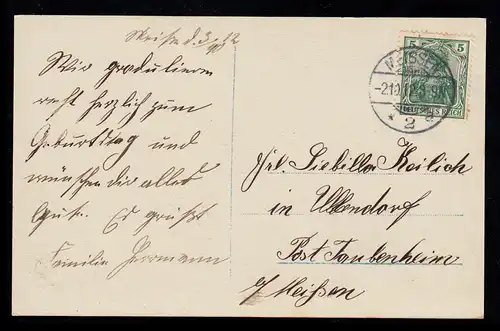 Meißen d. 3/10 12
Wir gradulieren
recht herzlich zum
Geburtstag und
wünschen Dir alles
Gute. Es grüßt
Familie Herrmann
5 5
MEISSEN
DEUTSCHES REICH
* 2
Frl. Keilich
in Ullendorf
Post Taubenheim
b/ Meißen